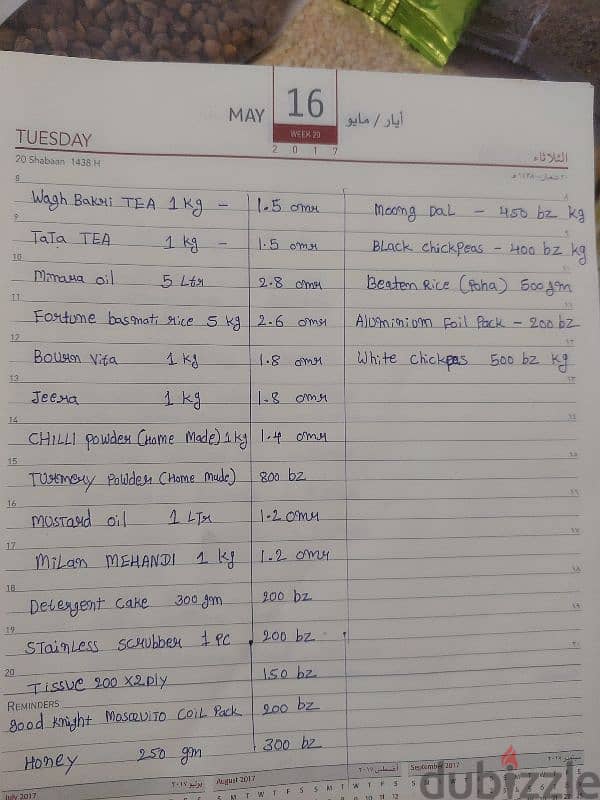 MAY 16 أيار / مايو
WEEK 20
2 0 1 7
TUESDAY الثلاثاء
20 Shabaan 1438 H
8
Wagh Bakri TEA 1 Kg - 1.5 omr
Moong Dal - 450 bz kg
9
TaTa TEA 1 kg - 1.5 omr
Black chickpeas - 400 bz kg
10
Minara oil 5 Ltr 2.8 omr
Beaten Rice (Poha) 500 gm
11
Fortune basmati rice 5 kg 2.6 omr
Aluminiom Foil Pack - 200 bz
12
Bourn Vita 1 kg 1.8 omr
White chickpeas 500 bz kg
13
Jeera 1 kg 1.8 omr
14
CHILLI powder (Home Made) 1 kg 1.4 omr
15
Turmery Powder (Home Made) 800 bz
16
Mustard oil 1 LTr 1.2 omr
17
Milan MEHANDI 1 kg 1.2 omr
18
Detergent cake 300 gm 200 bz
19
STainless scrubber 1 PC 200 bz
20
Tissue 200 x 2 ply 150 bz
REMINDERS
good Knight Mosquito coil Pack 200 bz
Honey 250 gm 300 bz
July 2017 يوليو ٢٠١٧ August 2017 أغسطس ٢٠١٧ September 2017
dubizzle